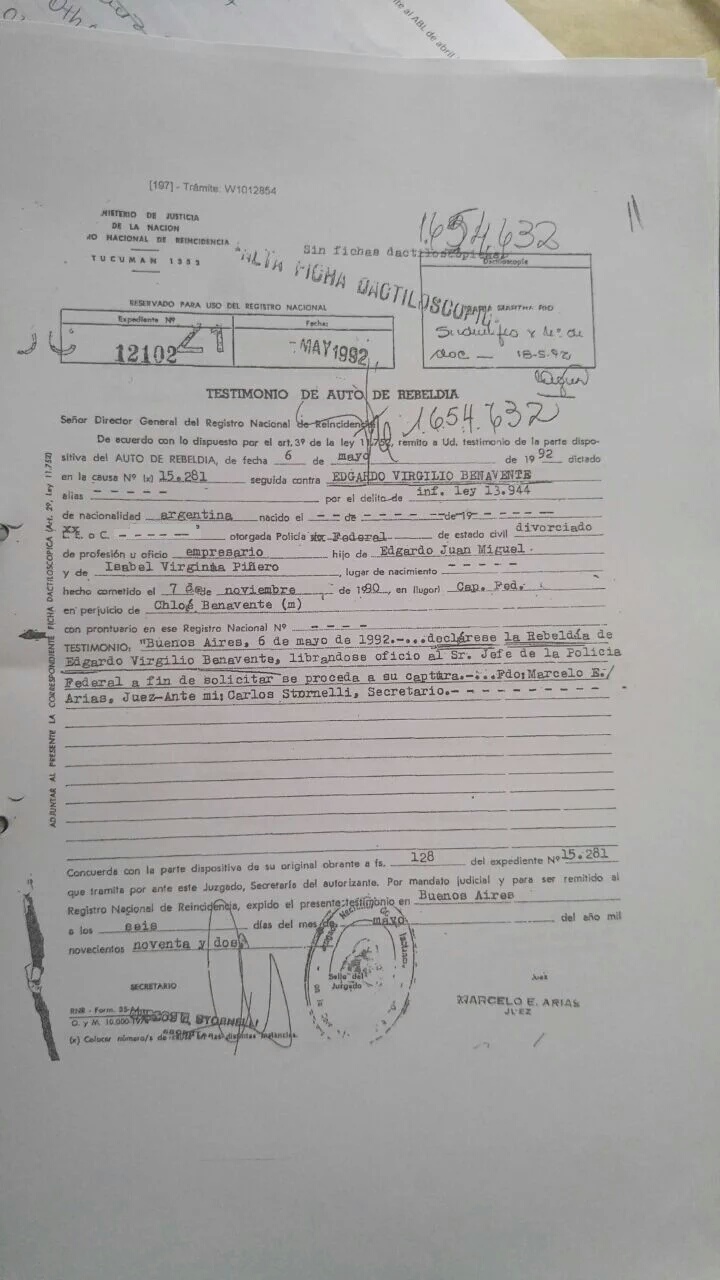 te al ABL de abril
[197] - Trámite: W1012854
NISTERIO DE JUSTICIA
DE LA NACION
RO NACIONAL DE REINCIDENCIA
TUCUMAN 1353
1.654.632
Sin fichas dactiloscopicas
FALTA FICHA DACTILOSCOPIC
Dactiloscopia
RESERVADO PARA USO DEL REGISTRO NACIONAL
Expediente Nº
Fecha:
12102
- MAY 1992
doc — 18-5-92
TESTIMONIO DE AUTO DE REBELDIA
1.654.632
Señor Director General del Registro Nacional de Reincidencia
De acuerdo con lo dispuesto por el art. 3º de la ley 11.752, remito a Ud. testimonio de la parte dispo-
sitiva del AUTO DE REBELDIA, de fecha 6 de mayo de 1992 dictado
en la causa Nº (x) 15.281 seguida contra EDGARDO VIRGILIO BENAVENTE
alias - - - - - por el delito de inf. ley 13.944
de nacionalidad argentina nacido el - - de - - - - - de 19 - - - - -
o C. - - - - - otorgada Policía Federal de estado civil divorciado
de profesión u oficio empresario hijo de Edgardo Juan Miguel.
y de Isabel Virginia Piñero, lugar de nacimiento - - - - -
hecho cometido el 7 de noviembre de 1990, en (lugar) Cap. Fed.
en perjuicio de Chloé Benavente (m)
con prontuario en ese Registro Nacional Nº - - - -
TESTIMONIO: "Buenos Aires, 6 de mayo de 1992.-...declárese la Rebeldía de
Edgardo Virgilio Benavente, librandose oficio al Sr. Jefe de la Policia
Federal a fin de solicitar se proceda a su captura.-...Fdo: Marcelo E./
Arias, Juez-Ante mi: Carlos Stornelli, Secretario.- - - - - - - - - -
ADJUNTAR AL PRESENTE LA CORRESPONDIENTE FICHA DACTILOSCOPICA (Art. 2º, Ley 11.752)
Concuerda con la parte dispositiva de su original obrante a fs. 128 del expediente Nº 15.281
que tramita por ante este Juzgado, Secretaría del autorizante. Por mandato judicial y para ser remitido al
Registro Nacional de Reincidencia, expido el presente testimonio en Buenos Aires
a los seis días del mes de mayo del año mil
novecientos noventa y dos
SECRETARIO
Sello del
Juzgado
Juez
MARCELO E. ARIAS
JUEZ
RNR - Form. 35
O. y M. 10.000
STORNELLI
(x) Colocar número/s de causa en las distintas instancias.